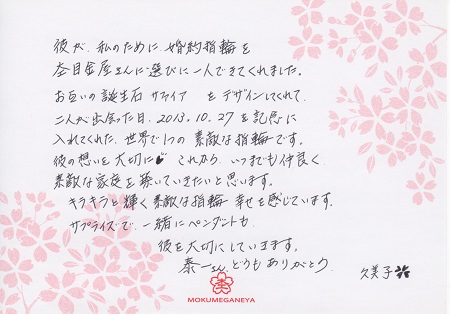 彼が、私のために、婚約指輪を
杢目金屋さんに選びに一人できてくれました。
お互いの誕生石 サファイア をデザインしてくれて、
二人が出会った日、2013.10.27を記念に
入れてくれた、世界で1つの素敵な指輪です。
彼の想いを大切に♥ これから、いつまでも仲良く、
素敵な家庭を築いていきたいと思います。
キラキラと輝く素敵な指輪 幸せを感じています。
サプライズで、一緒にペンダントも
彼を大切にしていきます。
泰一さん、どうもありがとう 久美子
MOKUMEGANEYA